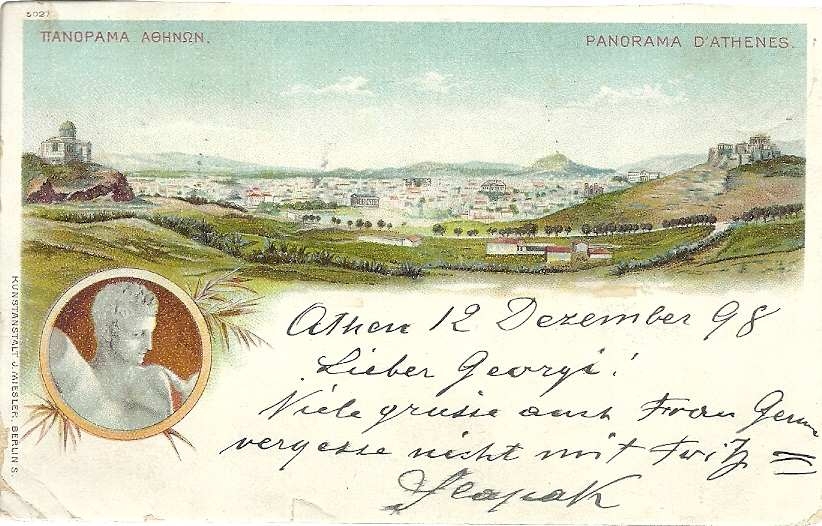 5027
ΠΑΝΟΡΑΜΑ ΑΘΗΝΩΝ.
PANORAMA D'ATHENES.
KUNSTANSTALT J. MIESLER, BERLIN S.
Athen 12 Dezember 98
Lieber Georgi!
Viele grüsse auch Frau
vergesse nicht mit Fritz =
Slapak